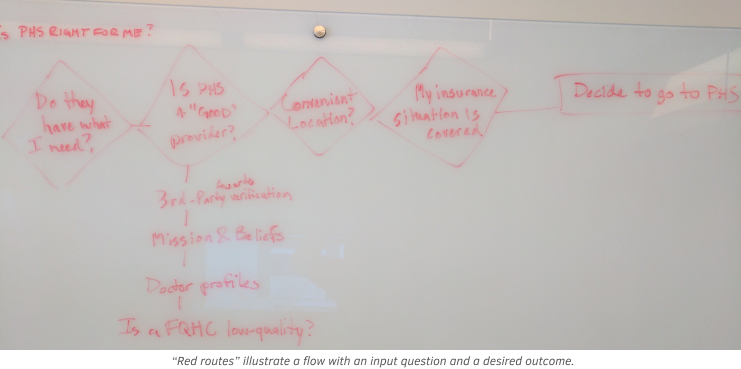 is PHS RIGHT FOR ME?
Do they
have what
I need?
Is PHS
a "GOOD"
provider?
Convenient
Location?
My insurance
situation is
covered
Decide to go to PHS
Awards
3rd-Party verification
Mission & Beliefs
Doctor profiles
Is a FQHC low-quality?
“Red routes” illustrate a flow with an input question and a desired outcome.